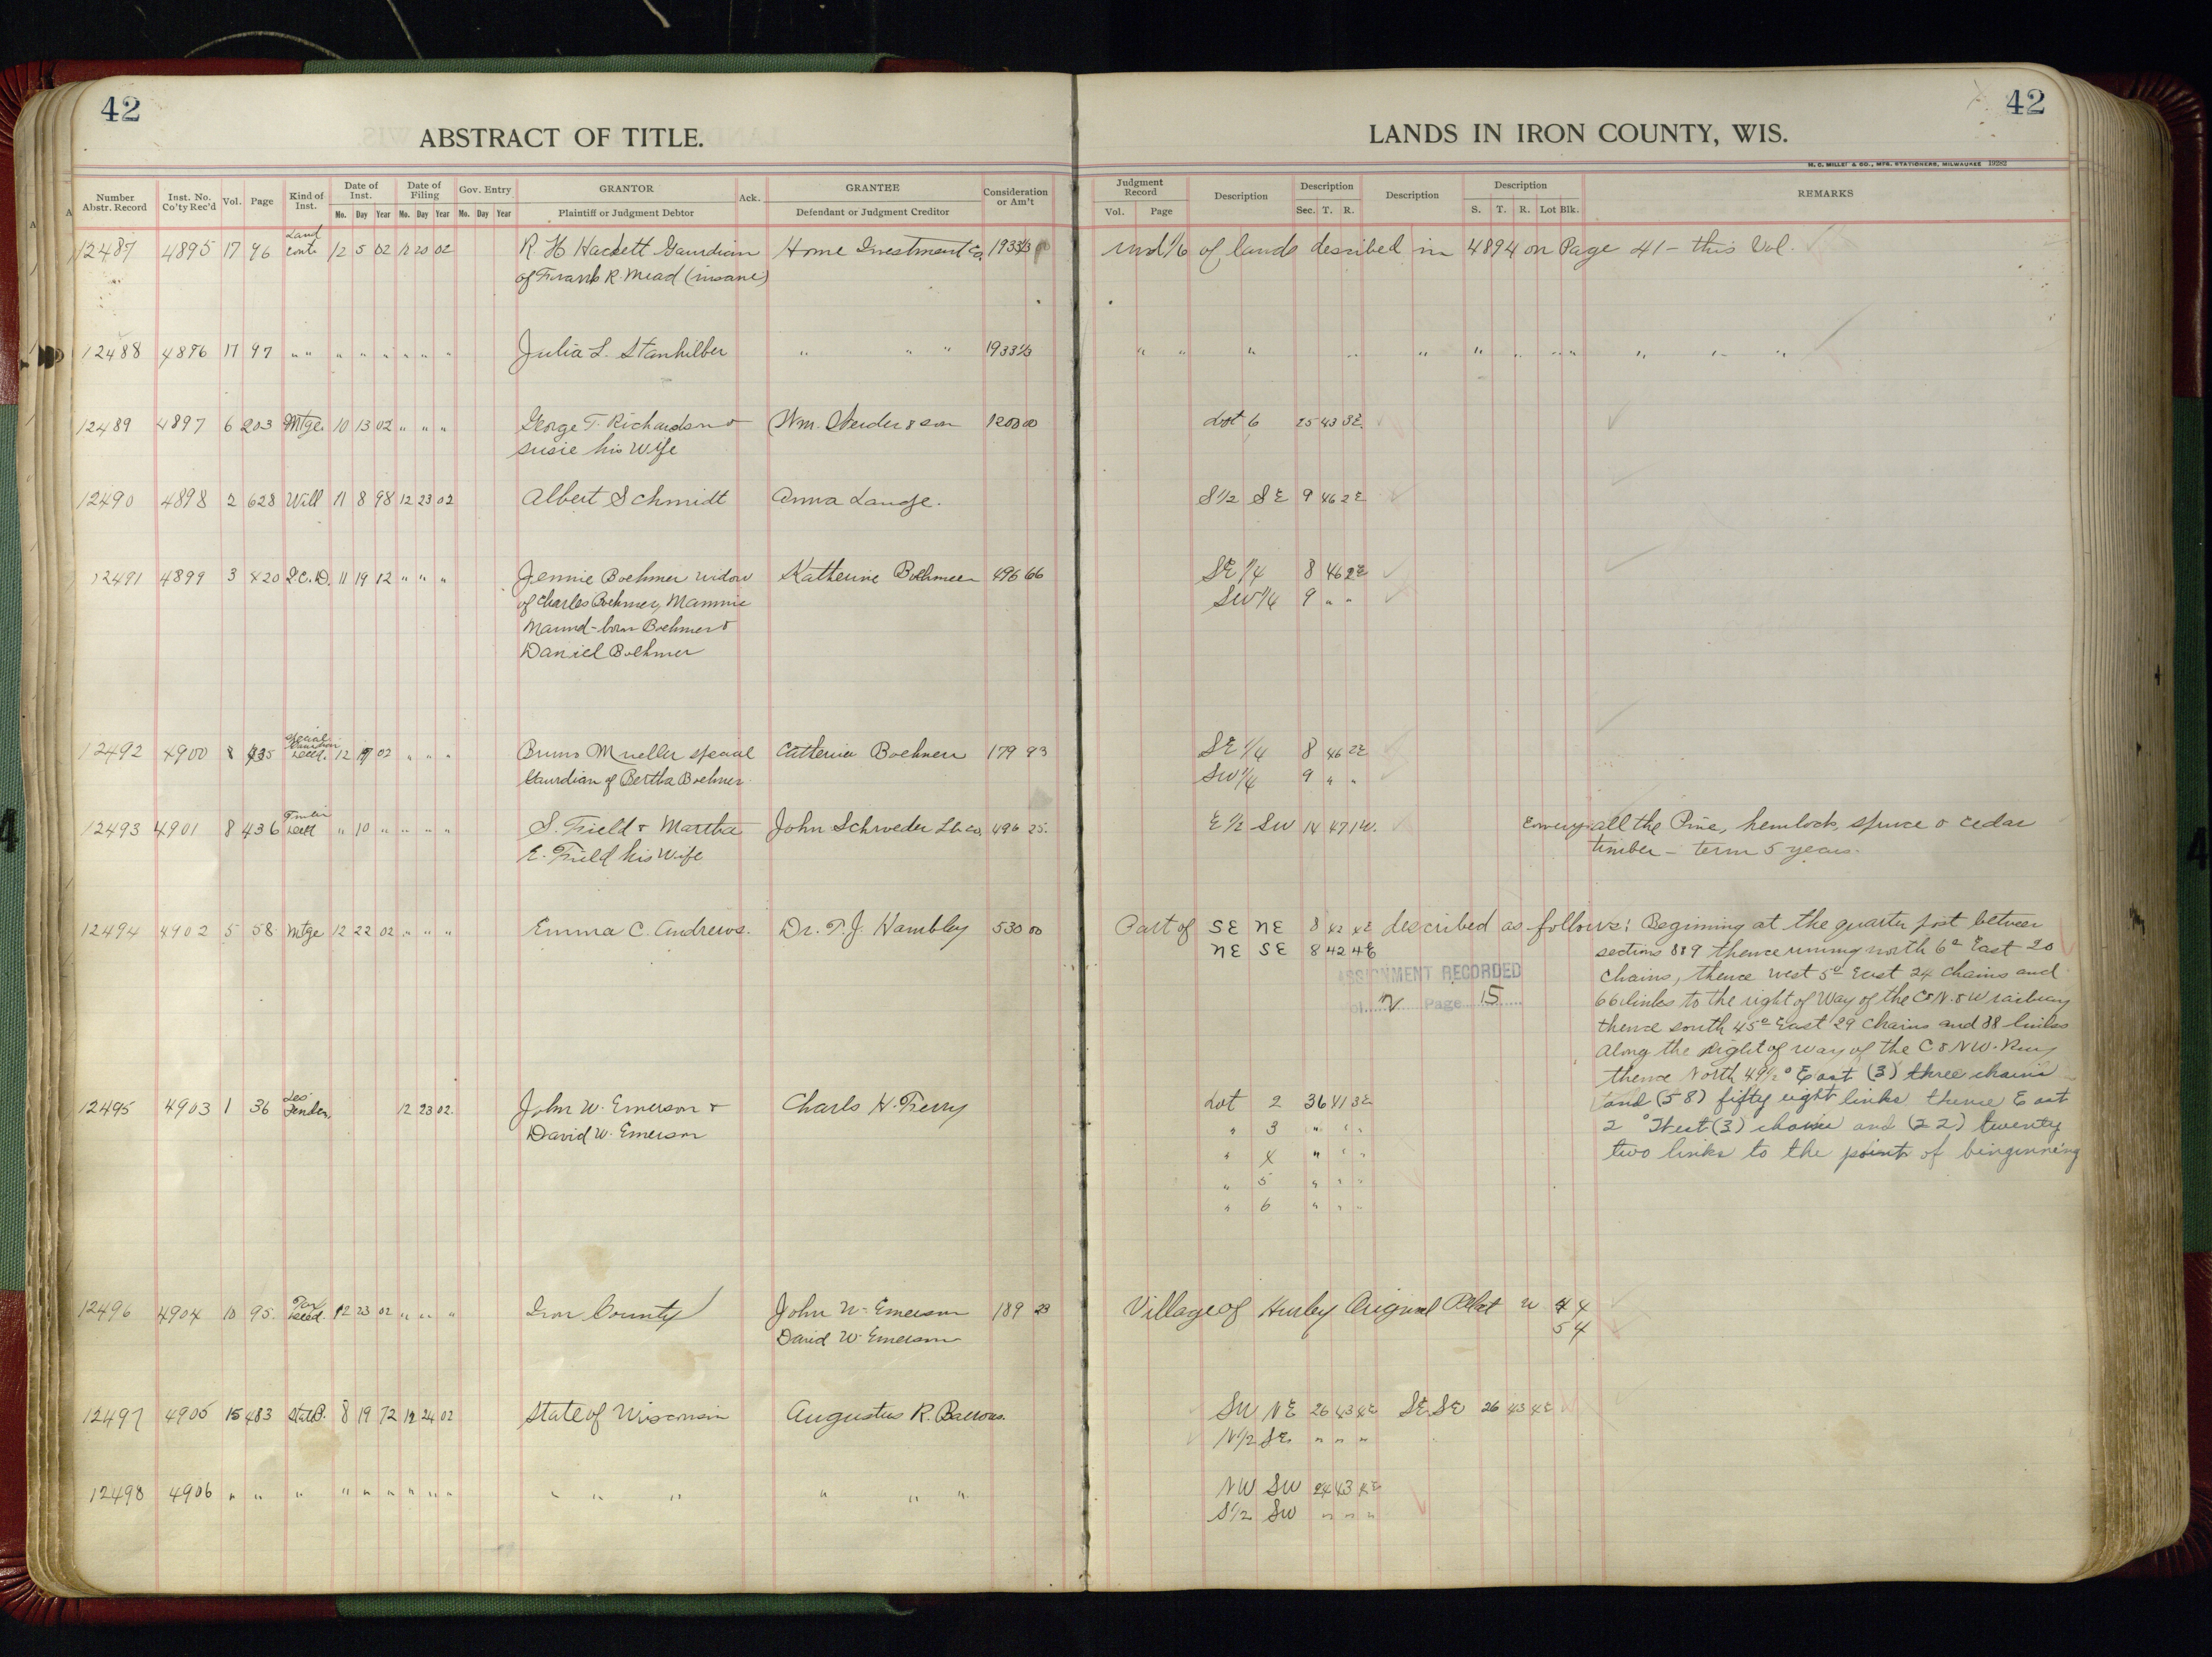 42
ABSTRACT OF TITLE.
Number Abstr. Record Inst. No. Co'ty Rec'd Vol. Page Kind of Inst. Date of Inst. Mo. Day Year Date of Filing Mo. Day Year Gov. Entry Mo. Day Year GRANTOR Plaintiff or Judgment Debtor Ack. GRANTEE Defendant or Judgment Creditor Consideration or Am't
12487 4895 17 96 Land Cont. 12 5 02 12 20 02 R H Hackett Gaurdian Home Investment Co. 1933 1/3
of Frank R. Mead (insane)
12488 4896 17 97 " " " " " " " " Julia L. Stanhilber " " " 1933 1/3
12489 4897 6 203 Mtge 10 13 02 " " " George T. Richardson & Wm. & son 1200 00
Susie his Wife
12490 4898 2 628 Will 11 8 98 12 23 02 Albert Schmidt Anna Lange.
12491 4899 3 420 Q.C.D. 11 19 12 " " " Jennie Boehmer widow Katherine Boehmer 496 66
of Charles Boehmer, Mammie
Maund-born Boehmer &
Daniel Boehmer
12492 4900 8 435 Special Deed. 12 02 " " " Bruno Mueller special Catherine Boehmer 179 93
Gaurdian of Bertha Boehmer
12493 4901 8 436 Timber Deed " 10 " " " " S. Field & Martha John Schroeder Lb. Co. 496 25.
E. Field his Wife
12494 4902 5 58 Mtge 12 22 02 " " " Emma C. Andrews. Dr. T. J. Hambley 530 00
12495 4903 1 36 Les Penden 12 23 02 John W. Emerson & Charls H. Ferry
David W. Emerson
12496 4904 10 95 Tax Deed. 12 23 02 " " " Iron County John W. Emerson 189 23
David W. Emerson
12497 4905 15 483 State P. 8 19 72 12 24 02 State of Wisconsin Augustus R. Barrows.
12498 4906 " " " " " " " " " " " " " " "
42
LANDS IN IRON COUNTY, WIS.
H. C. MILLER CO., MFG. STATIONERS, MILWAUKEE 19282
Judgment Record Vol. Page Description Description Sec. T. R. Description Description S. T. R. Lot Blk. REMARKS
und 1/6 of lands desribed in 4894 on Page 41 - this Vol.
" " " " " " " " " " " "
Lot 6 25 43 3E.
S 1/2 SE 9 46 2E
SE 1/4 8 46 2E
SW 1/4 9 " "
SE 1/4 8 46 2E
SW 1/4 9 " "
E 1/2 SW 14 47 1W. all the Pine, hemlock, spruce & cedar
timber - term 5 years.
Part of SE NE 8 42 4E described as follows: Beginning at the quarter post between
NE SE 8 42 4E sections 8 & 9 thence runing north 6° East 20
ASSIGNMENT RECORDED chains, thence west 5° East 24 chains and
Vol. Page 15 66 links to the right of Way of the C & N. & W railway
thence south 45° East 29 chains and 38 links
along the right of way of the C & NW. Rwy
thence North 49 1/2° East (3) three chains
Lot 2 36 41 3E and (58) fifty eight links thence East
" 3 " " " 2° West (3) chains and (22) twenty
" 4 " " " two links to the point of binginning
" 5 " " "
" 6 " " "
Village of Hurley Original Plat 4 4
5 4
SW NE 26 43 4E SE SE 26 43 4E
N 1/2 SE " " "
NW SW 24 43 4E
S 1/2 SW " " "